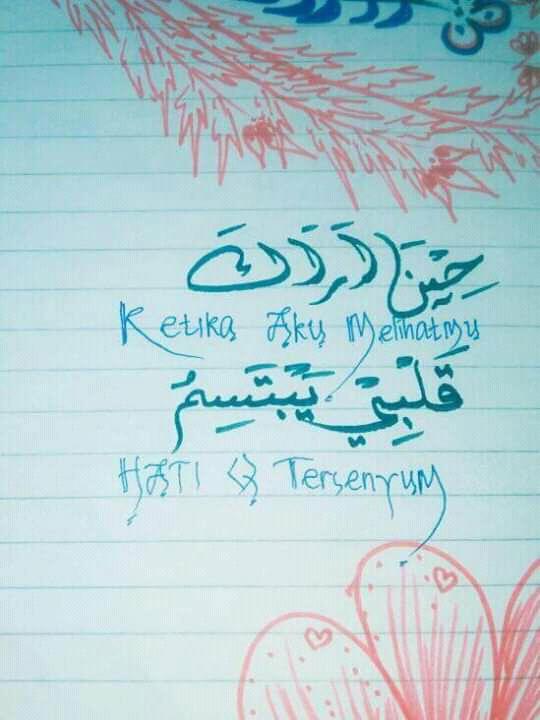 حِيْنَ اَرَاكَ
Ketika Aku Melihatmu
قَلْبِيْ يَبْتَسِمُ
HATI Q Tersenyum